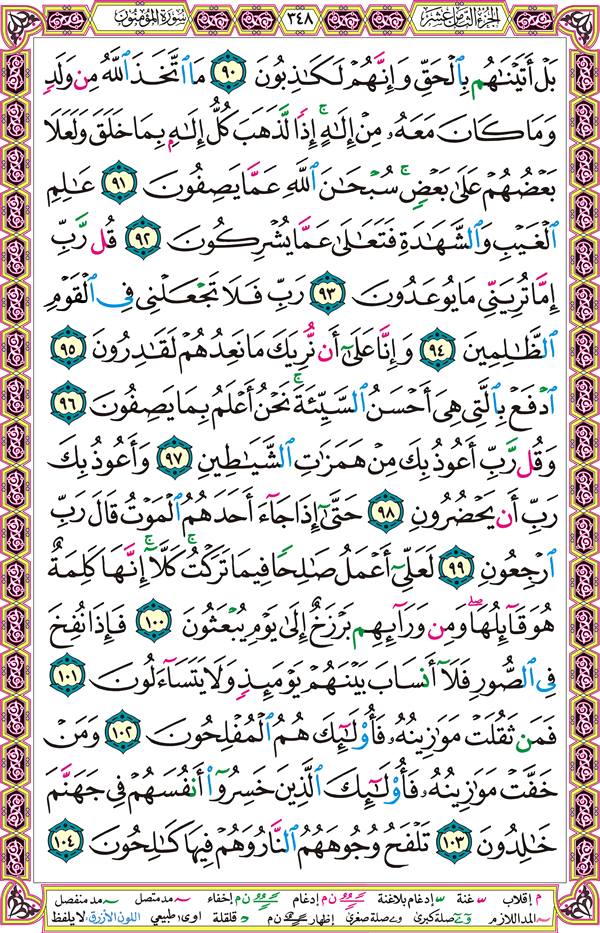 الجزء الثامن عشر ٣٤٨ سورة المؤمنون
بَلْ أَتَيْنَٰهُم بِٱلْحَقِّ وَإِنَّهُمْ لَكَٰذِبُونَ ٩٠ مَا ٱتَّخَذَ ٱللَّهُ مِن وَلَدٍ
وَمَا كَانَ مَعَهُۥ مِنْ إِلَٰهٍ ۚ إِذًا لَّذَهَبَ كُلُّ إِلَٰهٍۭ بِمَا خَلَقَ وَلَعَلَا
بَعْضُهُمْ عَلَىٰ بَعْضٍ ۚ سُبْحَٰنَ ٱللَّهِ عَمَّا يَصِفُونَ ٩١ عَٰلِمِ
ٱلْغَيْبِ وَٱلشَّهَٰدَةِ فَتَعَٰلَىٰ عَمَّا يُشْرِكُونَ ٩٢ قُل رَّبِّ
إِمَّا تُرِيَنِّى مَا يُوعَدُونَ ٩٣ رَبِّ فَلَا تَجْعَلْنِى فِى ٱلْقَوْمِ
ٱلظَّٰلِمِينَ ٩٤ وَإِنَّا عَلَىٰٓ أَن نُّرِيَكَ مَا نَعِدُهُمْ لَقَٰدِرُونَ ٩٥
ٱدْفَعْ بِٱلَّتِى هِىَ أَحْسَنُ ٱلسَّيِّئَةَ ۚ نَحْنُ أَعْلَمُ بِمَا يَصِفُونَ ٩٦
وَقُل رَّبِّ أَعُوذُ بِكَ مِنْ هَمَزَٰتِ ٱلشَّيَٰطِينِ ٩٧ وَأَعُوذُ بِكَ
رَبِّ أَن يَحْضُرُونِ ٩٨ حَتَّىٰٓ إِذَا جَآءَ أَحَدَهُمُ ٱلْمَوْتُ قَالَ رَبِّ
ٱرْجِعُونِ ٩٩ لَعَلِّىٓ أَعْمَلُ صَٰلِحًا فِيمَا تَرَكْتُ ۚ كَلَّآ ۚ إِنَّهَا كَلِمَةٌ
هُوَ قَآئِلُهَا ۖ وَمِن وَرَآئِهِم بَرْزَخٌ إِلَىٰ يَوْمِ يُبْعَثُونَ ١٠٠ فَإِذَا نُفِخَ
فِى ٱلصُّورِ فَلَآ أَنسَابَ بَيْنَهُمْ يَوْمَئِذٍ وَلَا يَتَسَآءَلُونَ ١٠١
فَمَن ثَقُلَتْ مَوَٰزِينُهُۥ فَأُو۟لَٰٓئِكَ هُمُ ٱلْمُفْلِحُونَ ١٠٢ وَمَنْ
خَفَّتْ مَوَٰزِينُهُۥ فَأُو۟لَٰٓئِكَ ٱلَّذِينَ خَسِرُوٓا۟ أَنفُسَهُمْ فِى جَهَنَّمَ
خَٰلِدُونَ ١٠٣ تَلْفَحُ وُجُوهَهُمُ ٱلنَّارُ وَهُمْ فِيهَا كَٰلِحُونَ ١٠٤
م إقلاب س غنة س إدغام بلاغنة ن م إدغام ن م إخفاء مد متصل مد منفصل
المد اللازم صلة كبرى صلة صغرى إظهار ن م قلقلة اوى طبيعي اللون الأزرق لا يلفظ